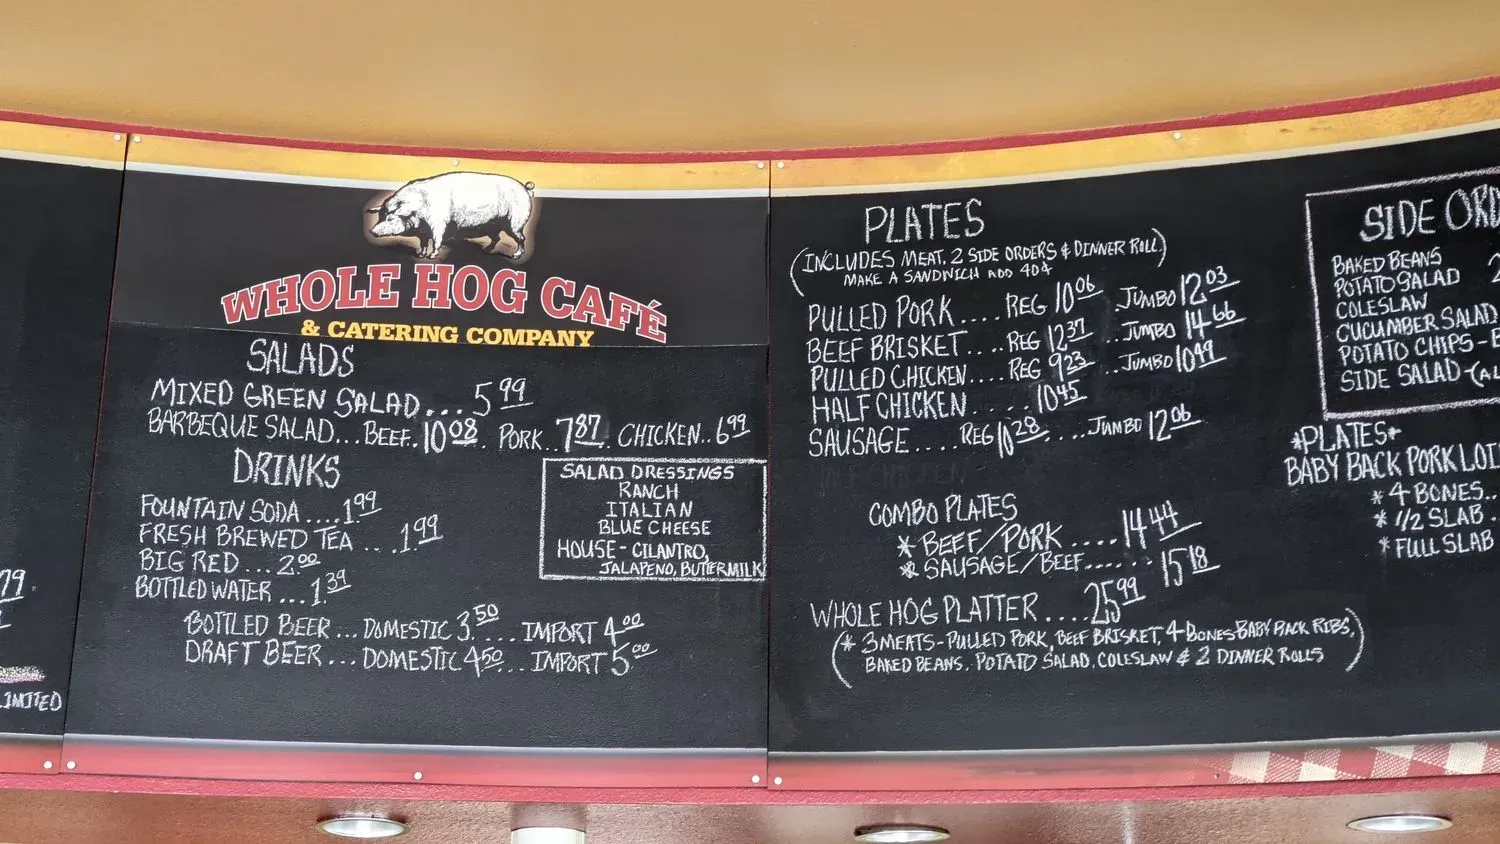 79
LIMITED
WHOLE HOG CAFÉ
& CATERING COMPANY
SALADS
MIXED GREEN SALAD... 5.99
BARBEQUE SALAD... BEEF.. 10.08. PORK.. 7.87. CHICKEN.. 6.99
DRINKS
FOUNTAIN SODA .... 1.99
FRESH BREWED TEA ... 1.99
BIG RED ... 2.00
BOTTLED WATER .... 1.39
BOTTLED BEER ... DOMESTIC 3.50 ... IMPORT 4.00
DRAFT BEER ... DOMESTIC 4.50 ... IMPORT 5.00
SALAD DRESSINGS
RANCH
ITALIAN
BLUE CHEESE
HOUSE - CILANTRO,
JALAPENO, BUTTERMILK
PLATES
(INCLUDES MEAT, 2 SIDE ORDERS & DINNER ROLL)
MAKE A SANDWICH ADD 40¢
PULLED PORK .... REG 10.06 . JUMBO 12.03
BEEF BRISKET.... REG 12.37 ... JUMBO 14.66
PULLED CHICKEN.... REG 9.23 ... JUMBO 10.49
HALF CHICKEN ...... 10.45
SAUSAGE .... REG 10.28 .... JUMBO 12.06
COMBO PLATES
* BEEF/PORK .... 14.44
* SAUSAGE/BEEF...... 15.18
WHOLE HOG PLATTER .... 25.99
(* 3 MEATS - PULLED PORK, BEEF BRISKET, 4-BONES BABY BACK RIBS,
BAKED BEANS, POTATO SALAD, COLESLAW & 2 DINNER ROLLS)
SIDE ORD
BAKED BEANS
POTATO SALAD
COLESLAW
CUCUMBER SALAD
POTATO CHIPS -
SIDE SALAD - (AL
*PLATES*
BABY BACK PORK LOI
* 4 BONES..
* 1/2 SLAB .
* FULL SLAB